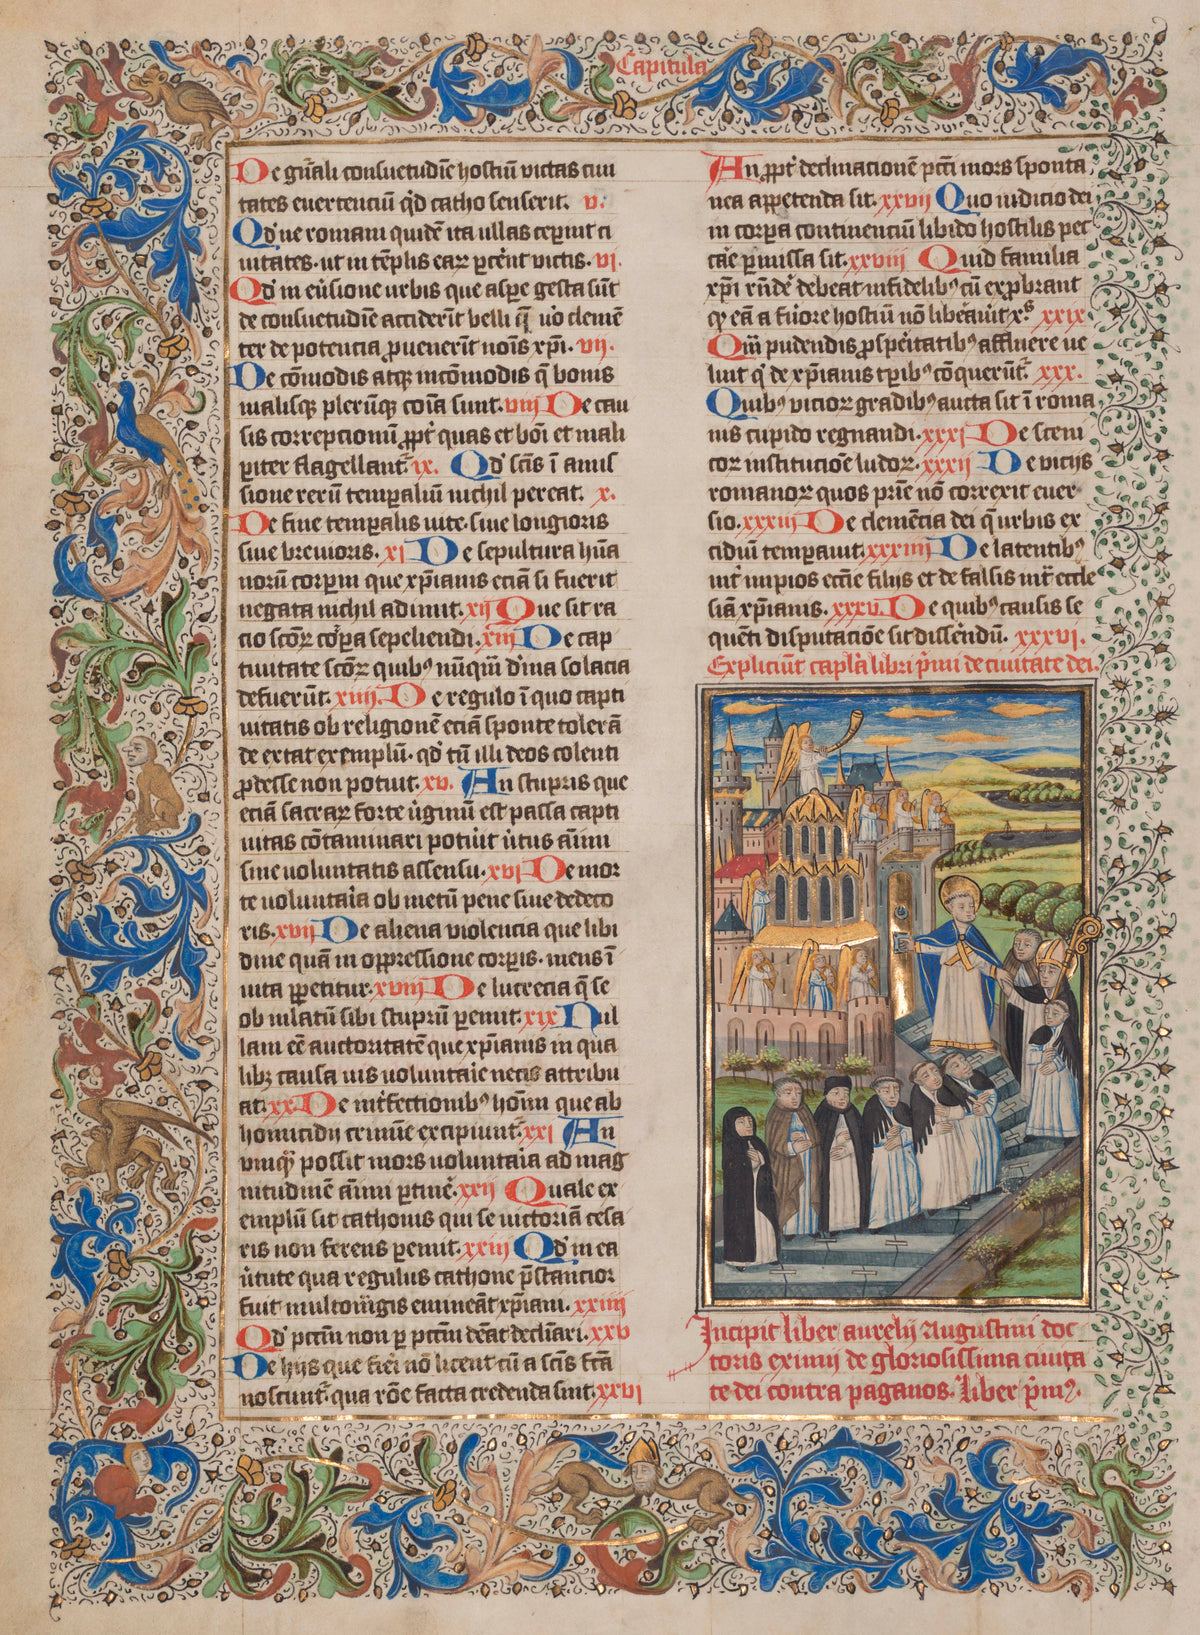 Capitula
De gn̄ali consuetudīe hostiū victas ciui
tates euertenciū qd̓ catho senserit. v.
Qd̓ ne romani quidē ita ullas ceperūt ci
uitates. ut in tēplis eaꝝ ꝑcērt victis. vi.
Qd̓ in eūsione urbis que asꝑe gesta sūt
de consuetudīe acciderīt belli q̄ uo̓ clemē
ter de potencia ꝓuenerīt noīs xp̄i. vii.
De cōmodis atqꝫ incōmodis q̄ bonis
malisqꝫ plerūqꝫ cōīa sunt. viii De cau
sis correpcionū ꝓpt̓ quas et boī et mali
ꝑiter flagellant̄ ix. Qd̓ sc̄is ī amis
sione rerū temꝑaliū nichil pereat. x.
De fine temꝑalis uite. siue longioris
siue breuioris. xi De sepultura hūa
norū corꝑm que xp̄ianis eciā si fuerit
negata nichil adimit. xii Que sit ra
cio sc̄oꝝ cor̓pa sepeliendi. xiii De cap
tiuitate sc̄oꝝ quibꝰ nūqūm di̓na solacia
defuerūt. xiiii. De regulo ī quo capti
uitatis ob religionē eciā sponte tolerā
de extat exemplū. qd̓ tn̄ illi deos colenti
ꝓdesse non potuit. xv. An stupris que
eciā sacraꝝ forte v̓ginū est passa capti
uitas cōtaminari potūit v̓tus aīmi
sine uoluntatis assensu. xvi De mor
te uoluntaīa ob metū pene siue dedeco
ris. xvii De aliena violencia que libi
dine quā in oppressione corꝑis. mens ī
uita ꝑpetitur. xviii De lucrecia q̄ se
ob illatū sibi stuprū ꝑemit. xix Nul
lam eē auctoritatē que xp̄ianis in qua
libꝫ causa ius uoluntaīe necis attribu
at. xx De int̓fectionibꝰ hoīm que ab
homicidij crimīe excipiunt̄. xxi An
vnqꝫ possit mors uoluntaīa ad mag
nitudinē aīmi ꝑtinē. xxii Quale ex
emplū sit cathonis qui se uictoriā cesa
ris non ferens ꝑemit. xxiii Qd̓ in ea
v̓tute qua regulus cathone p̄stancior
fuit multoīngis emineāt xp̄iani. xxiiii
Qd̓ pcc̄m non ꝑ pcc̄m dēat decliāri. xxv
De hijs que fieri nō licent cū a sc̄is fc̄ā
noscunt̄. qua rōe facta credenda sint. xxvi
An ꝓpt̓ declinacionē pcc̄i mors sponta
nea appetenda sit. xxvii Quo iudicio dei
in corꝑa continenciū libido hostilis pec
cāe ꝑmissa sit. xxviii Quid familia
xp̄i rn̄dē debeat infidelibꝰ cū exꝓbrant
qꝫ eā a fūore hostiū nō libēauit xp̄s xxix
Qm̄ pudendis ꝓsꝑitatibꝰ affluere ue
lint q̓ de xp̄ianis tꝑibꝰ cōquerūt̄. xxx.
Quibꝰ vicioꝝ gradibꝰ aucta sit ī roma
nis cupido regnandi. xxxi De sceni
coꝝ institucioē ludoꝝ. xxxii De vicijs
romanoꝝ quos pr̄ie nō correxit euer
sio. xxxiii De clemēcia dei q̄ urbis ex
cidiū temꝑauit. xxxiiii De latentibꝰ
int̓ impios eccīe filijs et de falsis int̓ eccle
siā xp̄ianis. xxxv. De quibꝰ causis se
quēti disputacioē sit disserēdū. xxxvi.
Expliciūt capl̄a libri p̄mi de ciuitate dei.
Incipit liber aurelij Augustini doc
toris eximij de gloriosissima ciuita
te dei contra paganos. Liber p̄mꝰ.